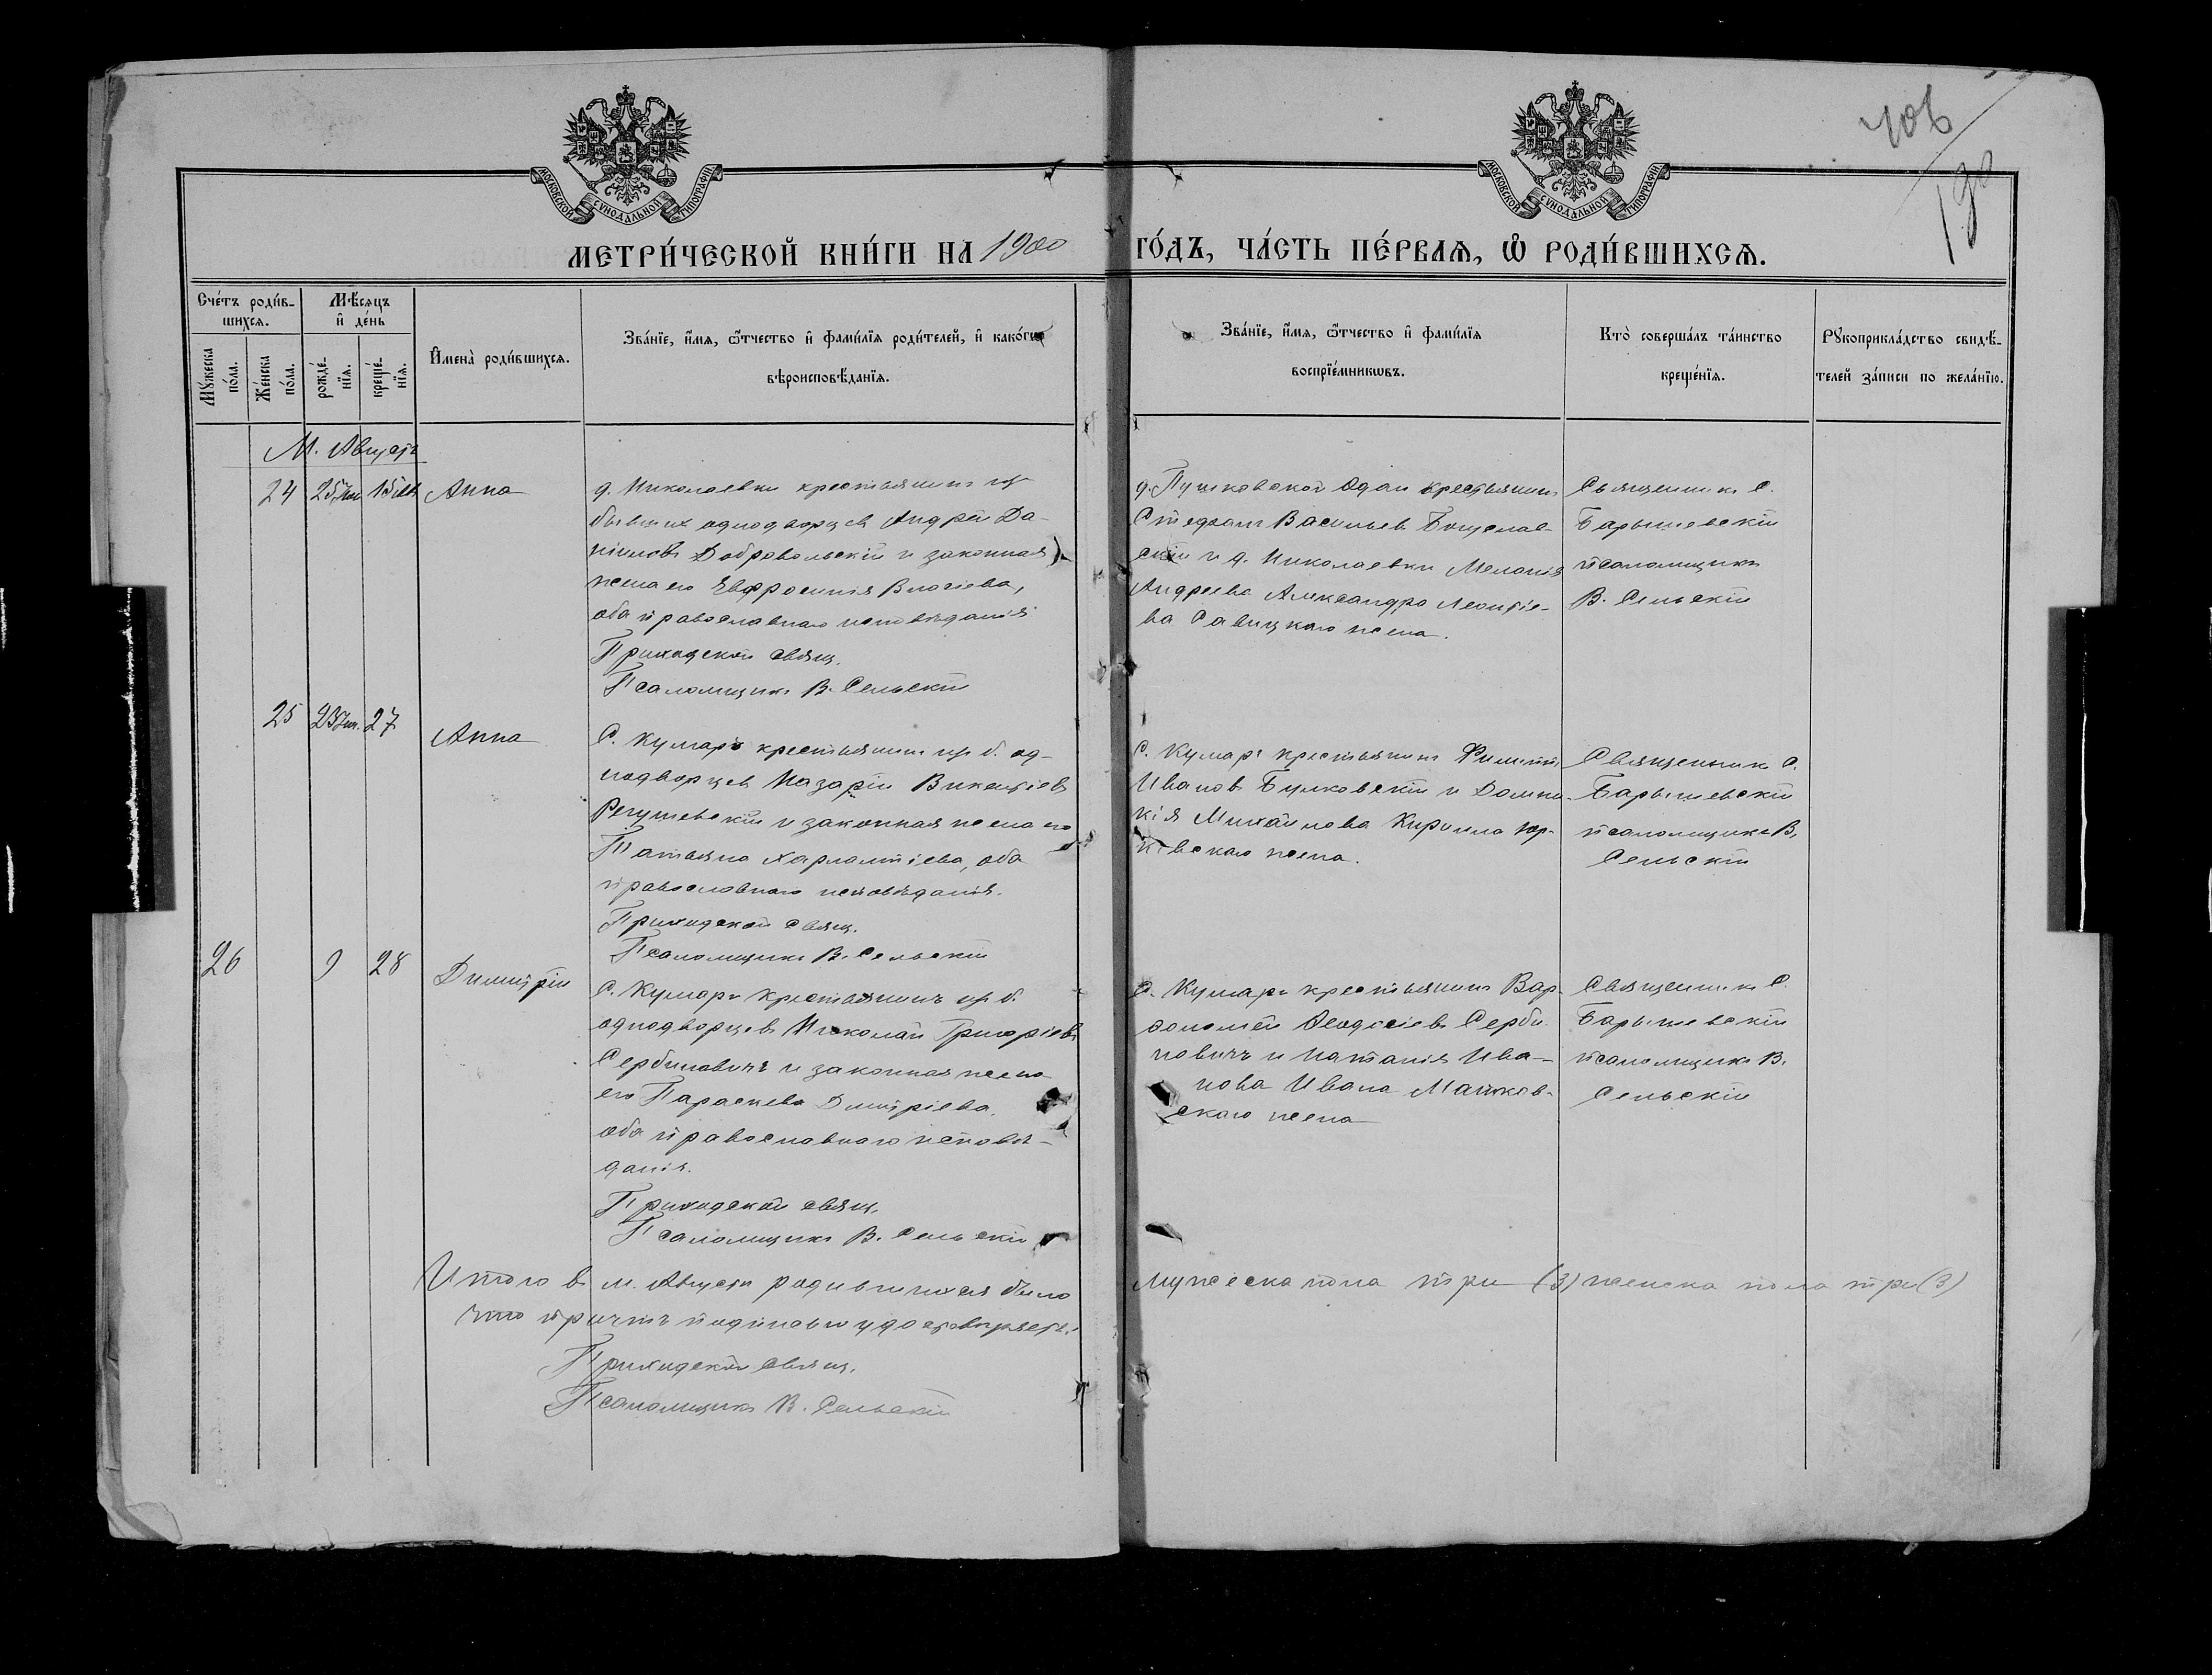 406
МОСКОВСКОЙ СѴНОДАЛЬНОЙ ТИПОГРАФІИ
МОСКОВСКОЙ СѴНОДАЛЬНОЙ ТИПОГРАФІИ
МЕТРИ́ЧЕСКОЙ КНИ́ГИ НА 1900 ГО́ДЪ, ЧА́СТЬ ПЕ́РВАѦ, Ѽ РОДИ́ВШИХСѦ.
Сче́тъ роди́в-
шихсѧ.
Мꙋ́жеска
по́ла.
Же́нска
по́ла.
Мѣ́сѧцъ
и҆ де́нь
рожде́-
нїѧ.
креще́-
нїѧ.
И҆мена̀ роди́вшихсѧ.
Зва́нїе, и҆́мѧ, ѻ҆́тчество и҆ фами́лїѧ роди́телей, и҆ како́гѡ
вѣроисповѣ́данїѧ.
Зва́нїе, и҆́мѧ, ѻ҆́тчество и҆ фами́лїѧ
воспрїе́мникѡвъ.
Кто̀ соверша́лъ та́инство
креще́нїѧ.
Рꙋкоприкла́дство свидѣ́-
телей за́писи по жела́нїю.
М. Августъ
24 25 Іюл 15 Авг Анна
д. Николаевки крестьянинъ изъ
бывших однодворцев Андрей Да-
ниловъ Добровольскій и законная
жена его Евфросинія
оба православнаго исповѣданія
Приходской свящ.
Псаломщикъ В. Сельскій
д. Пушковской крестьянинъ
Стефанъ Васильев Богуслав-
скій и д. Николаевки Меланія
Андреева Александра Леонтіе-
ва Савицкаго жена.
Священникъ С.
Барышевскій
псаломщикъ
В. Сельскій
25 23 Іюл. 27 Анна
С. Кумаръ крестьянинъ изъ б. од-
нодворцев Назарій Викентіевъ
и законная жена его
Татьяна Харлампіева, оба
православнаго исповѣданія.
Приходской свящ.
Псаломщикъ В. Сельскій
С. Кумаръ крестьянинъ Филиппъ
Ивановъ Булковскій и Домни-
кія Михайлова Кирилла Юр-
ковскаго жена.
Священник С.
Барышевскій
псаломщикъ В.
Сельскій
26 9 28 Димитрій
С. Кумаръ крестьянинъ изъ б.
однодворцевъ Николай Григоріевъ
Сербиновичъ и законная жена
его Параскева Димитріева,
оба православнаго исповѣ-
данія.
Приходской свящ.
Псаломщикъ В. Сельскій
С. Кумаръ крестьянинъ Вар-
ѳоломей Ѳеодосіевъ Серби-
новичъ и Наталія Ива-
нова Ивана Маньков-
скаго жена
Священникъ С.
Барышевскій
псаломщикъ В.
Сельскій
Итого въ м. Августѣ родившихся было мужеска пола три (3) женска пола три (3)
что причтъ подписью удостовѣряетъ.
Приходской свящ.
Псаломщикъ В. Сельскій